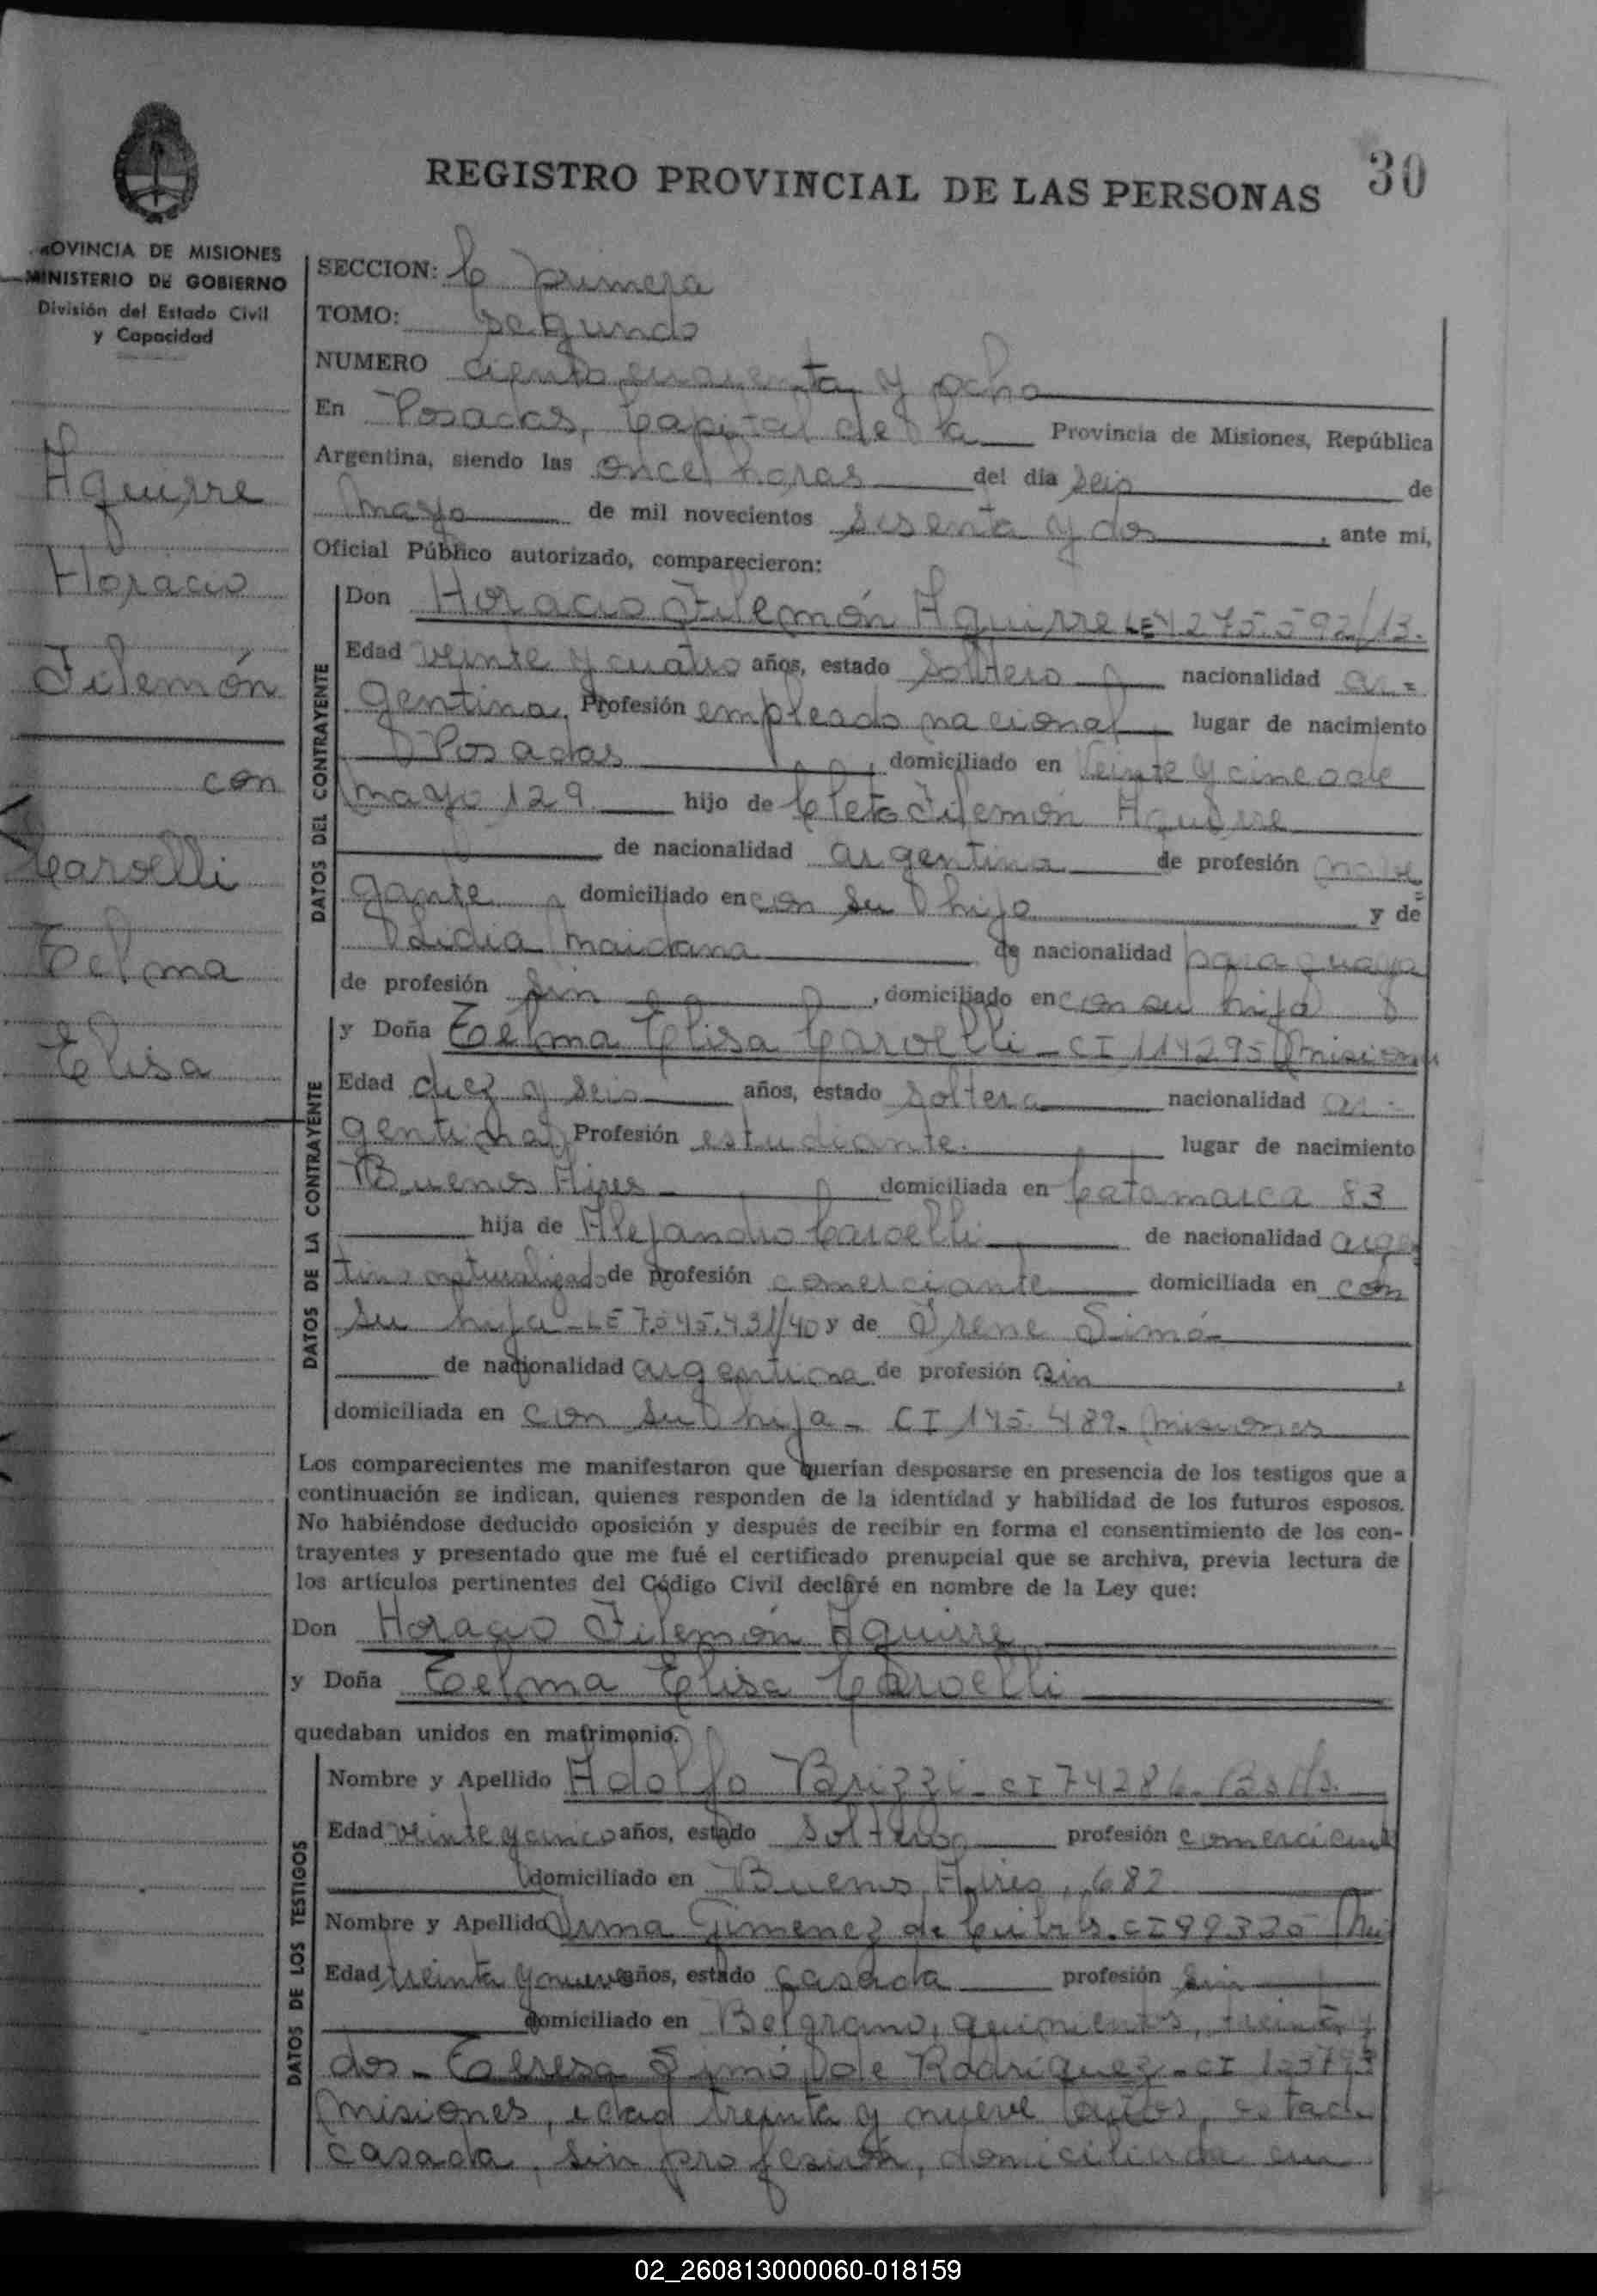 REGISTRO PROVINCIAL DE LAS PERSONAS 30
PROVINCIA DE MISIONES
MINISTERIO DE GOBIERNO
División del Estado Civil
y Capacidad
Aguirre
Horacio
Filemón
con
Caroelli
Telma
Elisa
SECCION: C primera
TOMO: segundo
NUMERO ciento cuarenta y ocho
En Posadas, Capital de la Provincia de Misiones, República
Argentina, siendo las once horas del día seis de
mayo de mil novecientos sesenta y dos, ante mi,
Oficial Público autorizado, comparecieron:
DATOS DEL CONTRAYENTE
Don Horacio Filemón Aguirre LE 4275.592/13.
Edad veinte y cuatro años, estado soltero nacionalidad ar-
gentina, Profesión empleado nacional, lugar de nacimiento
Posadas, domiciliado en Veinte y cinco de
mayo 129 hijo de Cleto Filemón Aguirre
de nacionalidad argentina de profesión nave
gante, domiciliado en con su hijo y de
Lidia Maidana de nacionalidad paraguaya
de profesión sin, domiciliado en con su hijo
DATOS DE LA CONTRAYENTE
y Doña Telma Elisa Caroelli - CI 114295 Misiones
Edad diez y seis años, estado soltera nacionalidad ar-
gentina, Profesión estudiante. lugar de nacimiento
Buenos Aires domiciliada en Catamarca 83
hija de Alejandro Caroelli de nacionalidad argen
tino naturalizado de profesión comerciante domiciliada en con
su hija - LE 7.545.431/40 y de Irene Simó
de nacionalidad argentina de profesión sin,
domiciliada en con su hija - CI 145.489. Misiones
Los comparecientes me manifestaron que querían desposarse en presencia de los testigos que a
continuación se indican, quienes responden de la identidad y habilidad de los futuros esposos.
No habiéndose deducido oposición y después de recibir en forma el consentimiento de los con-
trayentes y presentado que me fué el certificado prenupcial que se archiva, previa lectura de
los artículos pertinentes del Código Civil declaré en nombre de la Ley que:
Don Horacio Filemón Aguirre
y Doña Telma Elisa Caroelli
quedaban unidos en matrimonio.
DATOS DE LOS TESTIGOS
Nombre y Apellido Adolfo Brizzi - CI 74286 - Bs As.
Edad veinte y cinco años, estado soltero profesión comerciante
domiciliado en Buenos Aires, 682
Nombre y Apellido Irma Gimenez de CI 99330
Edad treinta y nueve años, estado casada profesión sin
domiciliado en Belgrano, quinientos, treinta y
dos - Teresa Simó de Rodríguez - CI
Misiones, edad treinta y nueve años, estado
casada, sin profesión, domiciliada en
02_260813000060-018159